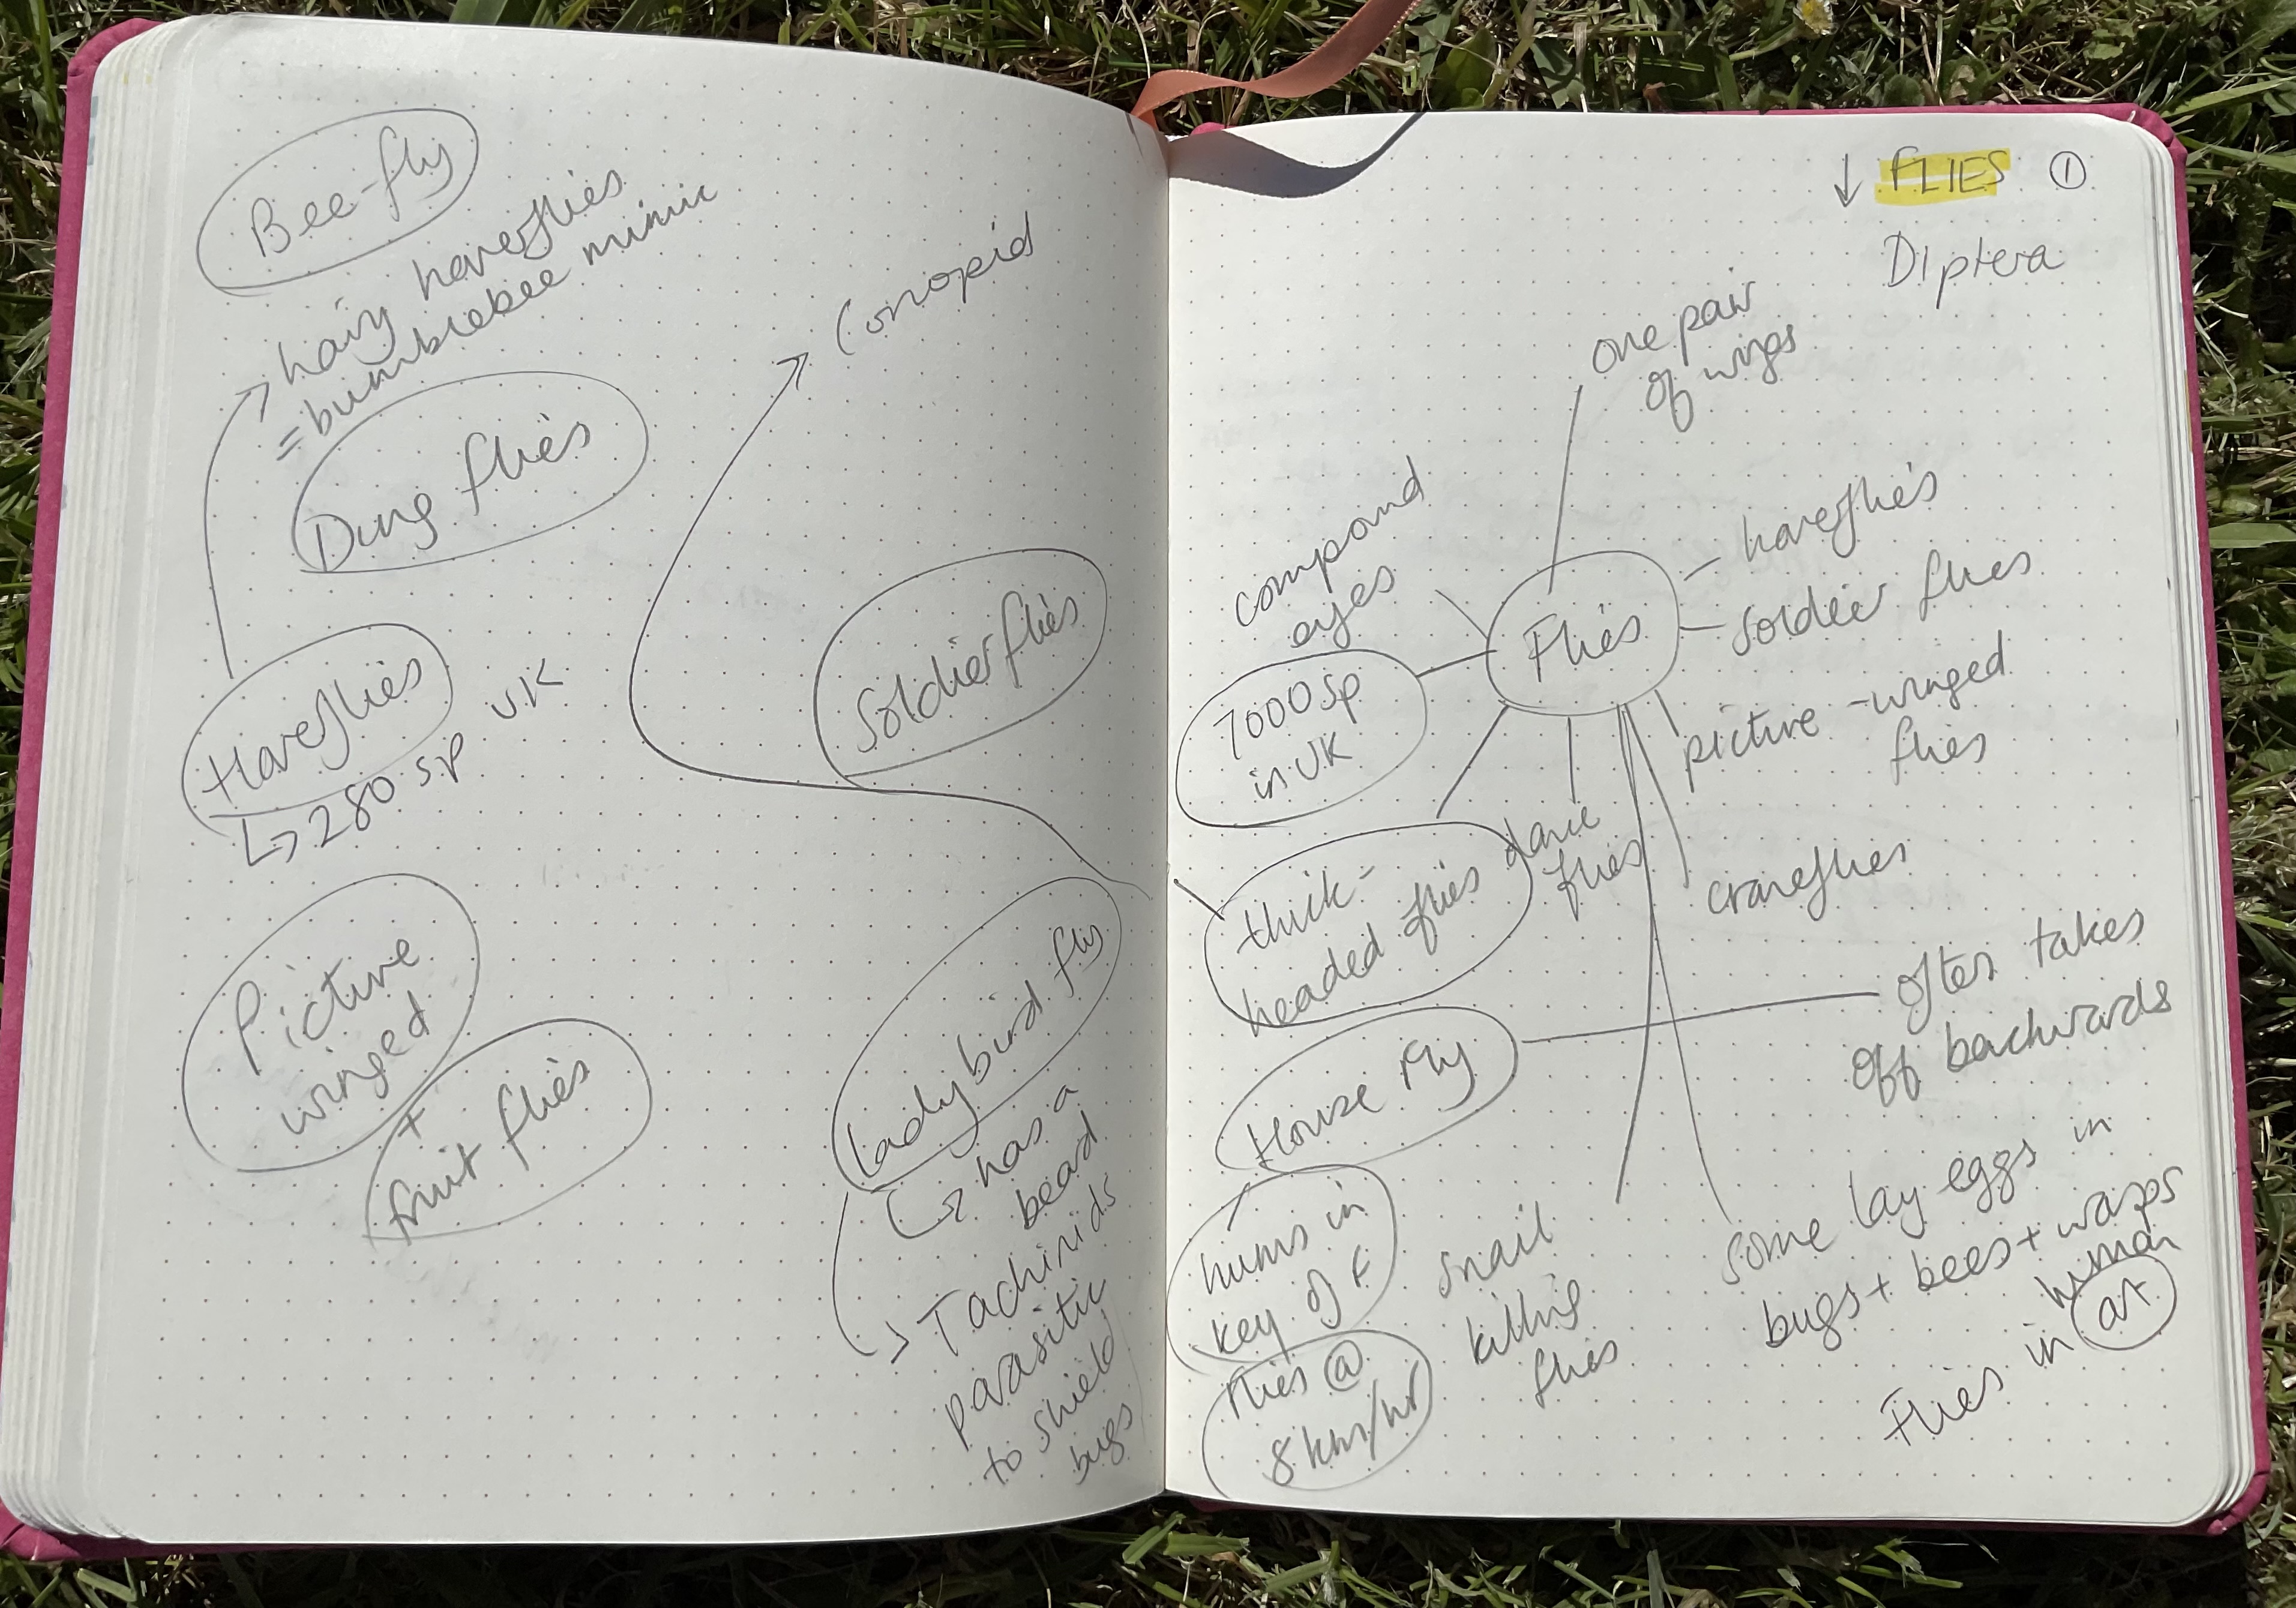 Bee-fly
hairy hoverflies
= bumblebee mimic
Dung flies
Hoverflies
↳ 280 sp UK
Picture
winged
+
fruit flies
Conopid
Soldierflies
Ladybird fly
↳ has a
beard
→ Tachinids
parasitic
to shield
bugs
↓ FLIES ①
Diptera
one pair
of wings
compound
eyes
Flies
hoverflies
soldier flies
picture-winged
flies
7000 sp
in UK
thick-
headed flies
dance
flies
craneflies
House Fly
often takes
off backwards
hums in
key of F
flies @
8km/hr
snail
killing
flies
some lay eggs in
bugs + bees + wasps
human
Flies in art